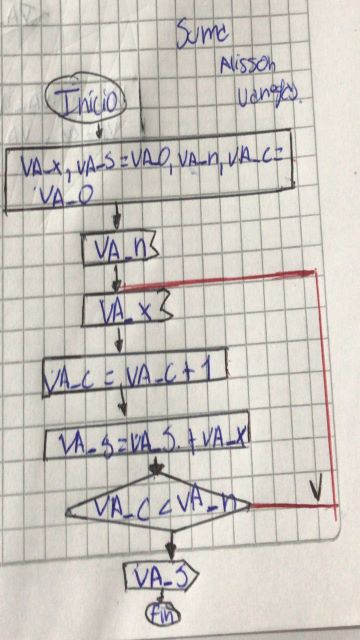 Suma
Alisson
Inicio
VA_x, VA_S=VA0, VA_n, VA_C=
VA_0
VA_n
VA_x
VA_C = VA_C + 1
VA_S=VA_S + VA_x
VA_C < VA_n
V
VA_S
fin